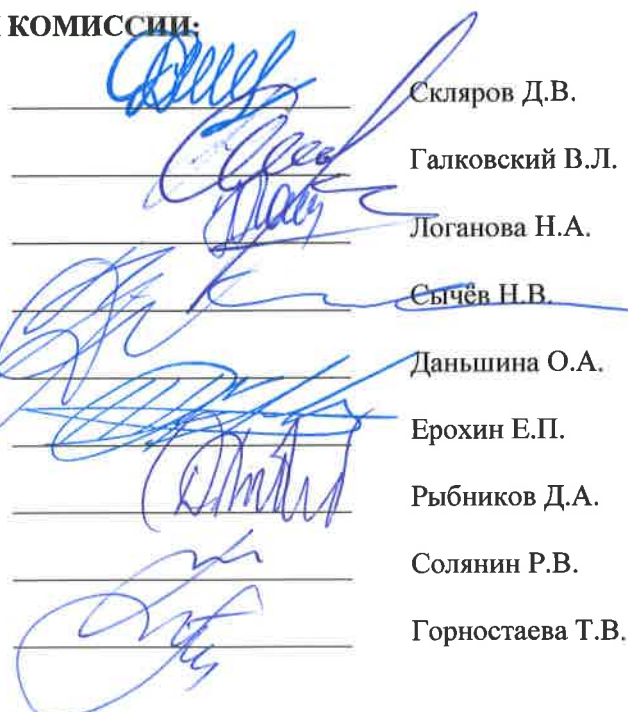 КОМИССИИ:
Скляров Д.В.
Галковский В.Л.
Логанова Н.А.
Сычёв Н.В.
Даньшина О.А.
Ерохин Е.П.
Рыбников Д.А.
Солянин Р.В.
Горностаева Т.В.